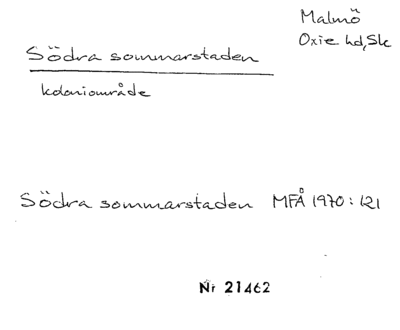 Malmö
Oxie hd, Sk
Södra sommarstaden
koloniområde
Södra sommarstaden MFÅ 1970:121
Nr 21462